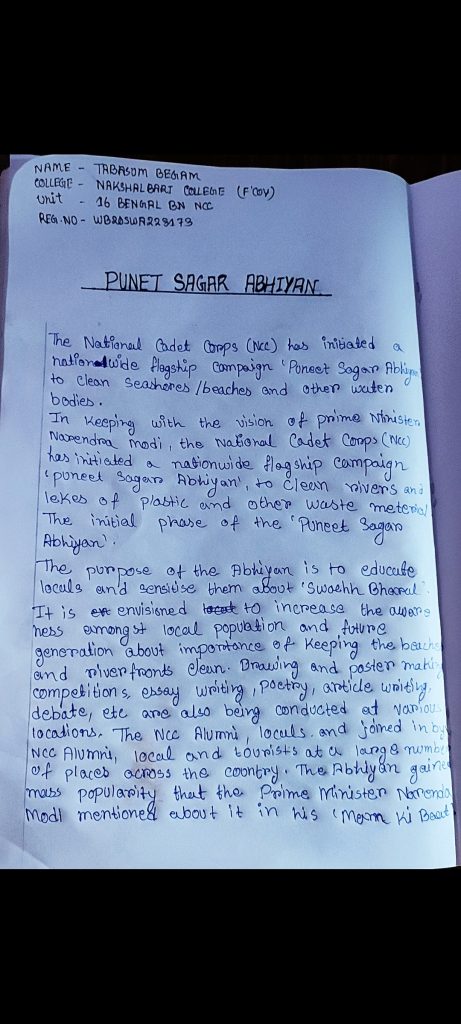 NAME - TABASUM BEGAM
COLLEGE - NAKSHALBARI COLLEGE (F'COY)
Unit - 16 BENGAL BN NCC
REG.NO - WB20SWA228173
PUNET SAGAR ABHIYAN
The National Cadet Corps (NCC) has initiated a
nationwide flagship campaign 'Puneet Sagar Abhiyan
to clean seashores/beaches and other water
bodies.
In keeping with the vision of prime Minister
Narendra modi, the National Cadet Corps (NCC)
has initiated a nationwide flagship campaign
'puneet Sagar Abhiyan', to clean rivers and
lekes of plastic and other waste meterial
The initial phase of the 'Puneet Sagar
Abhiyan'.
The purpose of the Abhiyan is to educate
locals and sensitise them about 'Swachh Bharat'.
It is envisioned to increase the aware
ness emongst local popution and future
generation about importance of keeping the beaches
and riverfronts clean. Drawing and poster making
competitions, essay writing, poetry, article writing,
debate, etc are also being conducted at various
locations. The NCC Alumni, locals. and joined in by
NCC Alumni, local and tourists at a large number
of places across the country. The Abhiyan gained
mass popularity that the Prime Minister Narenda
Modi mentioned about it in his 'Mann Ki Baat'